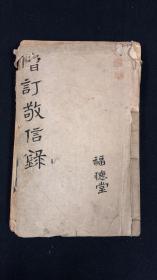 增訂敬信錄
福德堂